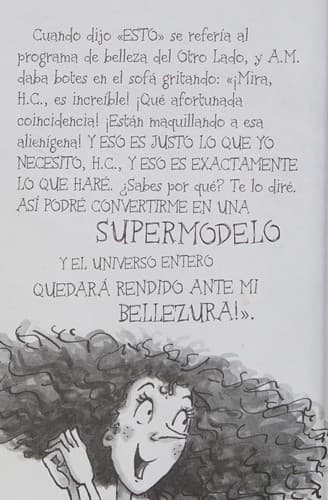 Cuando dijo «ESTO» se refería al
programa de belleza del Otro Lado, y A.M.
daba botes en el sofá gritando: «¡Mira,
H.C., es increíble! ¡Qué afortunada
coincidencia! ¡Están maquillando a esa
alienígena! Y ESO ES JUSTO LO QUE YO
NECESITO, H.C., Y ESO ES EXACTAMENTE
LO QUE HARÉ. ¿Sabes por qué? Te lo diré.
ASÍ PODRÉ CONVERTIRME EN UNA
SUPERMODELO
Y EL UNIVERSO ENTERO
QUEDARÁ RENDIDO ANTE MI
BELLEZURA!».